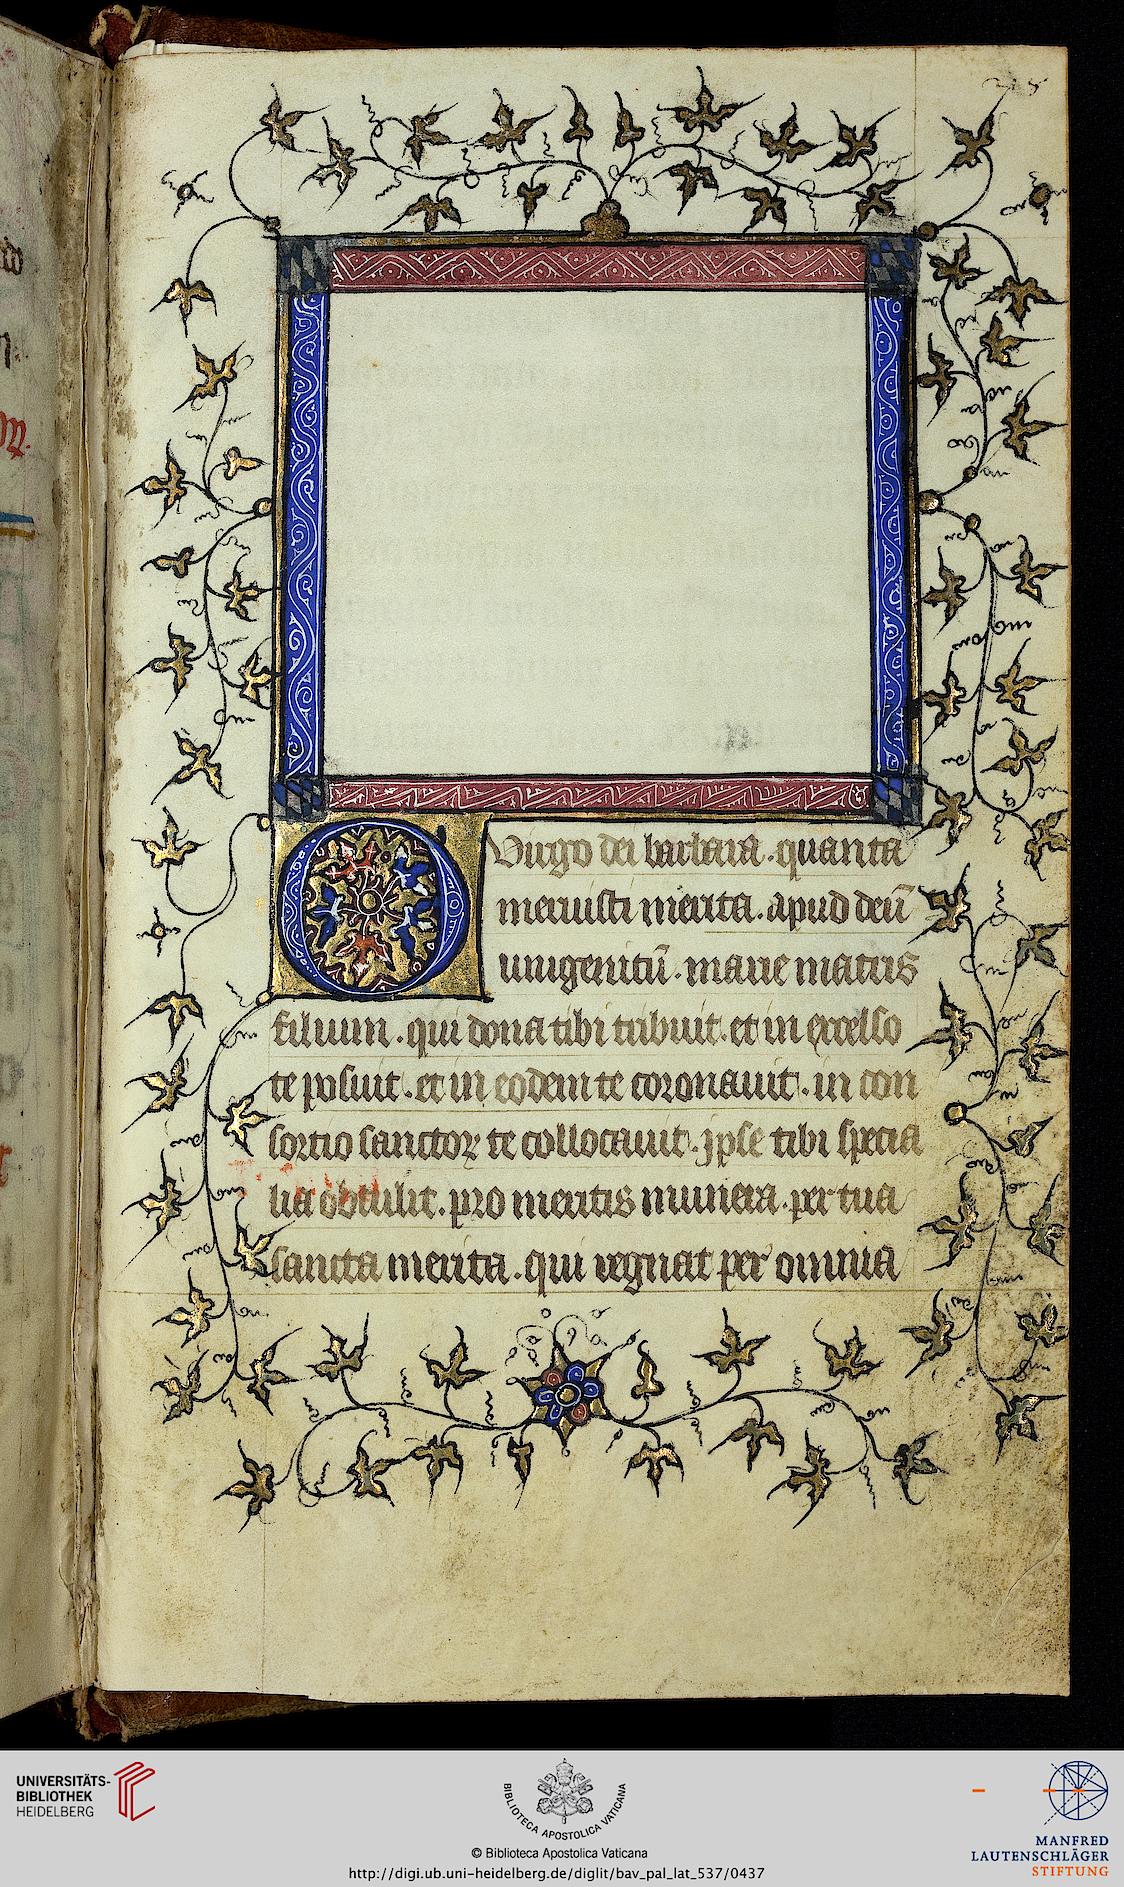 O Virgo dei barbara . quanta
meruisti merita . apud deū
unigenitū . marie matris
filium . qui dona tibi tribuit . et in excelso
te posuit . et in eodem te coronauit . in con
sortio sanctoꝝ te collocauit . jpse tibi specia
lia obtulit . pro meritis munera . per tua
sancta merita . qui regnat per omnia
UNIVERSITÄTS-
BIBLIOTHEK
HEIDELBERG
BIBLIOTECA APOSTOLICA VATICANA
© Biblioteca Apostolica Vaticana
http://digi.ub.uni-heidelberg.de/diglit/bav_pal_lat_537/0437
MANFRED
LAUTENSCHLÄGER
STIFTUNG